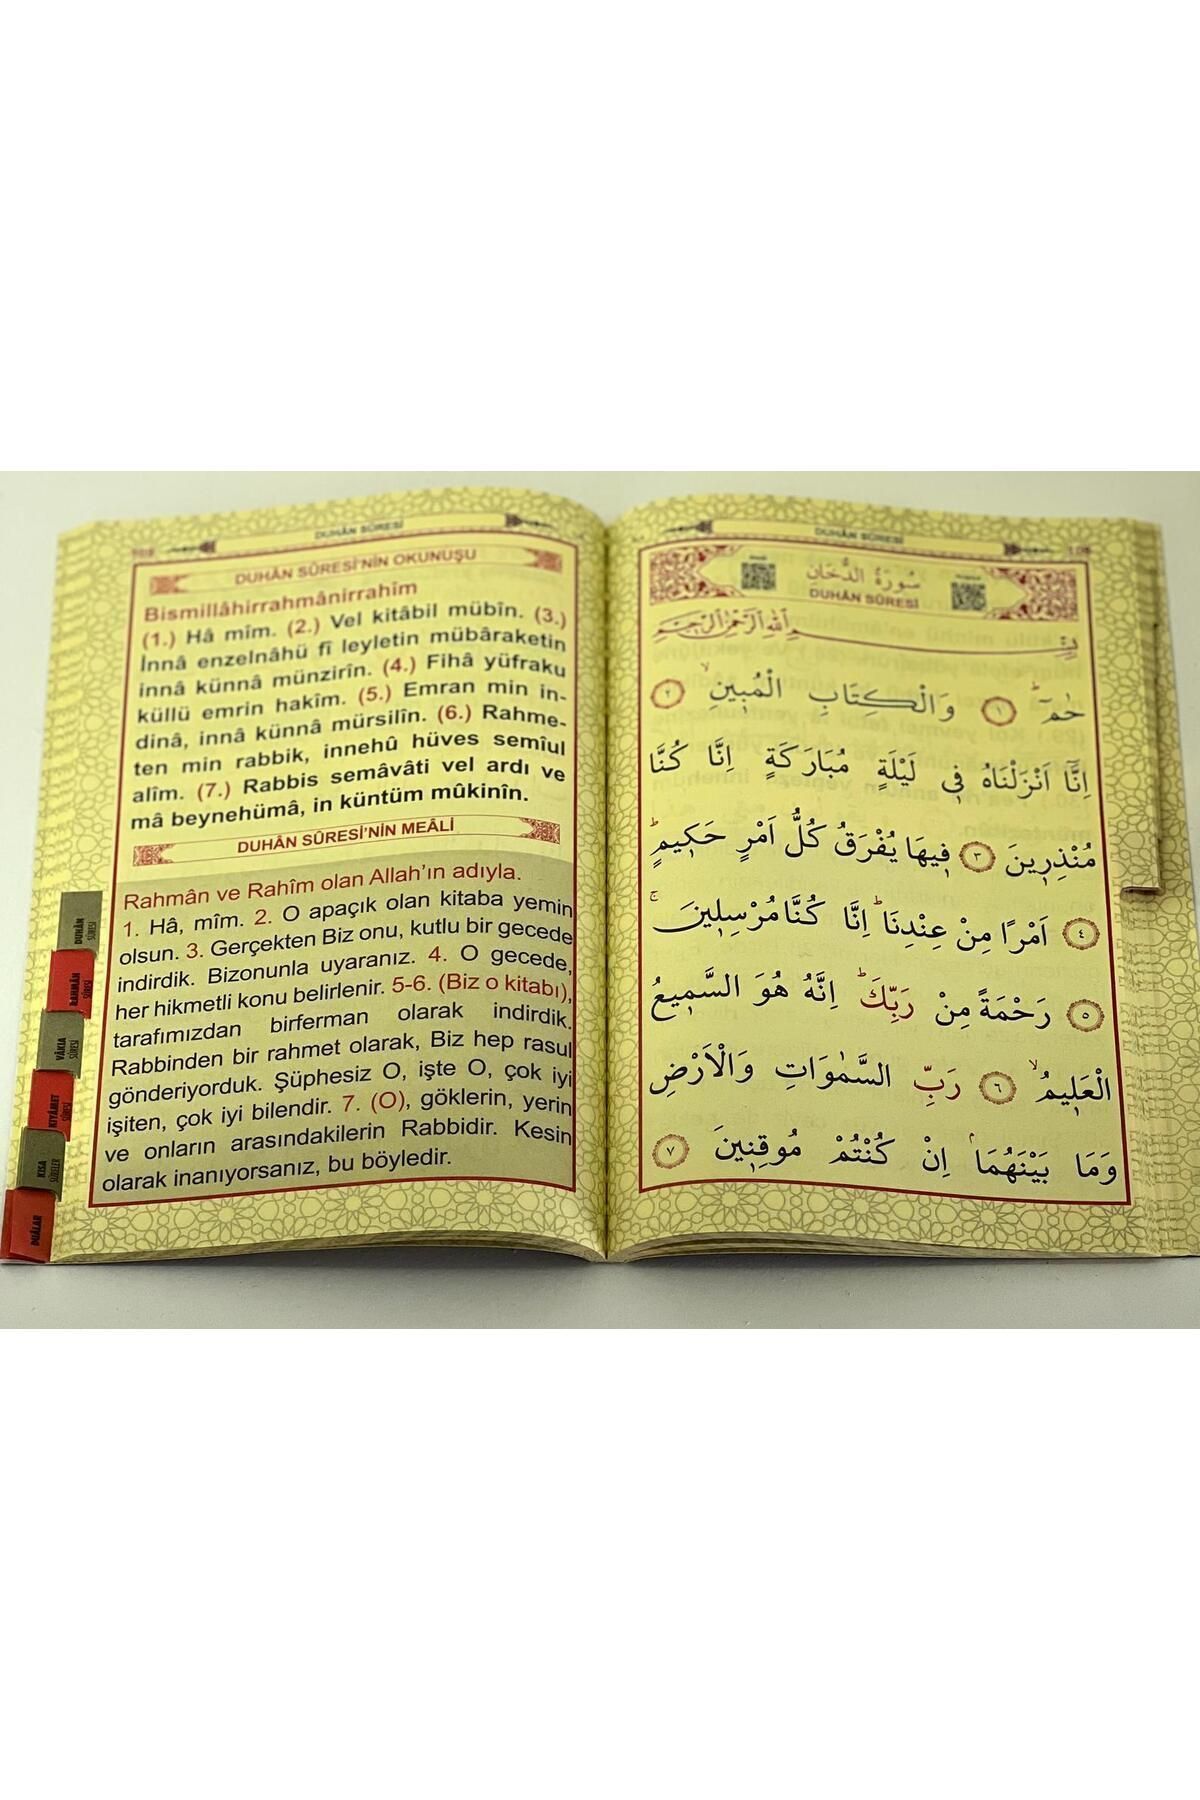 DUHÂN SÛRESİ
DUHÂN SÛRESİ'NİN OKUNUŞU
Bismillâhirrahmânirrahîm
(1.) Hâ mîm. (2.) Vel kitâbil mübîn. (3.)
İnnâ enzelnâhü fî leyletin mübâraketin
innâ künnâ münzirîn. (4.) Fîhâ yüfraku
küllü emrin hakîm. (5.) Emran min in-
dinâ, innâ künnâ mürsilîn. (6.) Rahme-
ten min rabbik, innehû hüves semîul
alîm. (7.) Rabbis semâvâti vel ardı ve
mâ beynehümâ, in küntüm mûkinîn.
DUHÂN SÛRESİ'NİN MEÂLİ
Rahmân ve Rahîm olan Allah'ın adıyla.
1. Hâ, mîm. 2. O apaçık olan kitaba yemin
olsun. 3. Gerçekten Biz onu, kutlu bir gecede
indirdik. Bizonunla uyaranız. 4. O gecede,
her hikmetli konu belirlenir. 5-6. (Biz o kitabı),
tarafımızdan birferman olarak indirdik.
Rabbinden bir rahmet olarak, Biz hep rasul
gönderiyorduk. Şüphesiz O, işte O, çok iyi
işiten, çok iyi bilendir. 7. (O), göklerin, yerin
ve onların arasındakilerin Rabbidir. Kesin
olarak inanıyorsanız, bu böyledir.
DUHÂN
SÛRESİ
RAHMÂN
SÛRESİ
VÂKIA
SÛRESİ
KIYÂMET
SÛRESİ
KISA
SÛRELER
DUÂLAR
DUHÂN SÛRESİ
سُورَةُ الدُّخَانِ
DUHÂN SÛRESİ
بِسْمِ اللهِ الرَّحْمٰنِ الرَّحِيمِ
حٰمٓ ۜ ﴿١﴾ وَالْكِتَابِ الْمُب۪ينِۙ ﴿٢﴾
اِنَّٓا اَنْزَلْنَاهُ ف۪ي لَيْلَةٍ مُبَارَكَةٍ اِنَّا كُنَّا
مُنْذِر۪ينَ ﴿٣﴾ ف۪يهَا يُفْرَقُ كُلُّ اَمْرٍ حَك۪يمٍۜ
﴿٤﴾ اَمْرًا مِنْ عِنْدِنَاۜ اِنَّا كُنَّا مُرْسِل۪ينَۚ
﴿٥﴾ رَحْمَةً مِنْ رَبِّكَۜ اِنَّهُ هُوَ السَّم۪يعُ
الْعَل۪يمُۙ ﴿٦﴾ رَبِّ السَّمٰوَاتِ وَالْاَرْضِ
وَمَا بَيْنَهُمَاۢ اِنْ كُنْتُمْ مُوقِن۪ينَ ﴿٧﴾